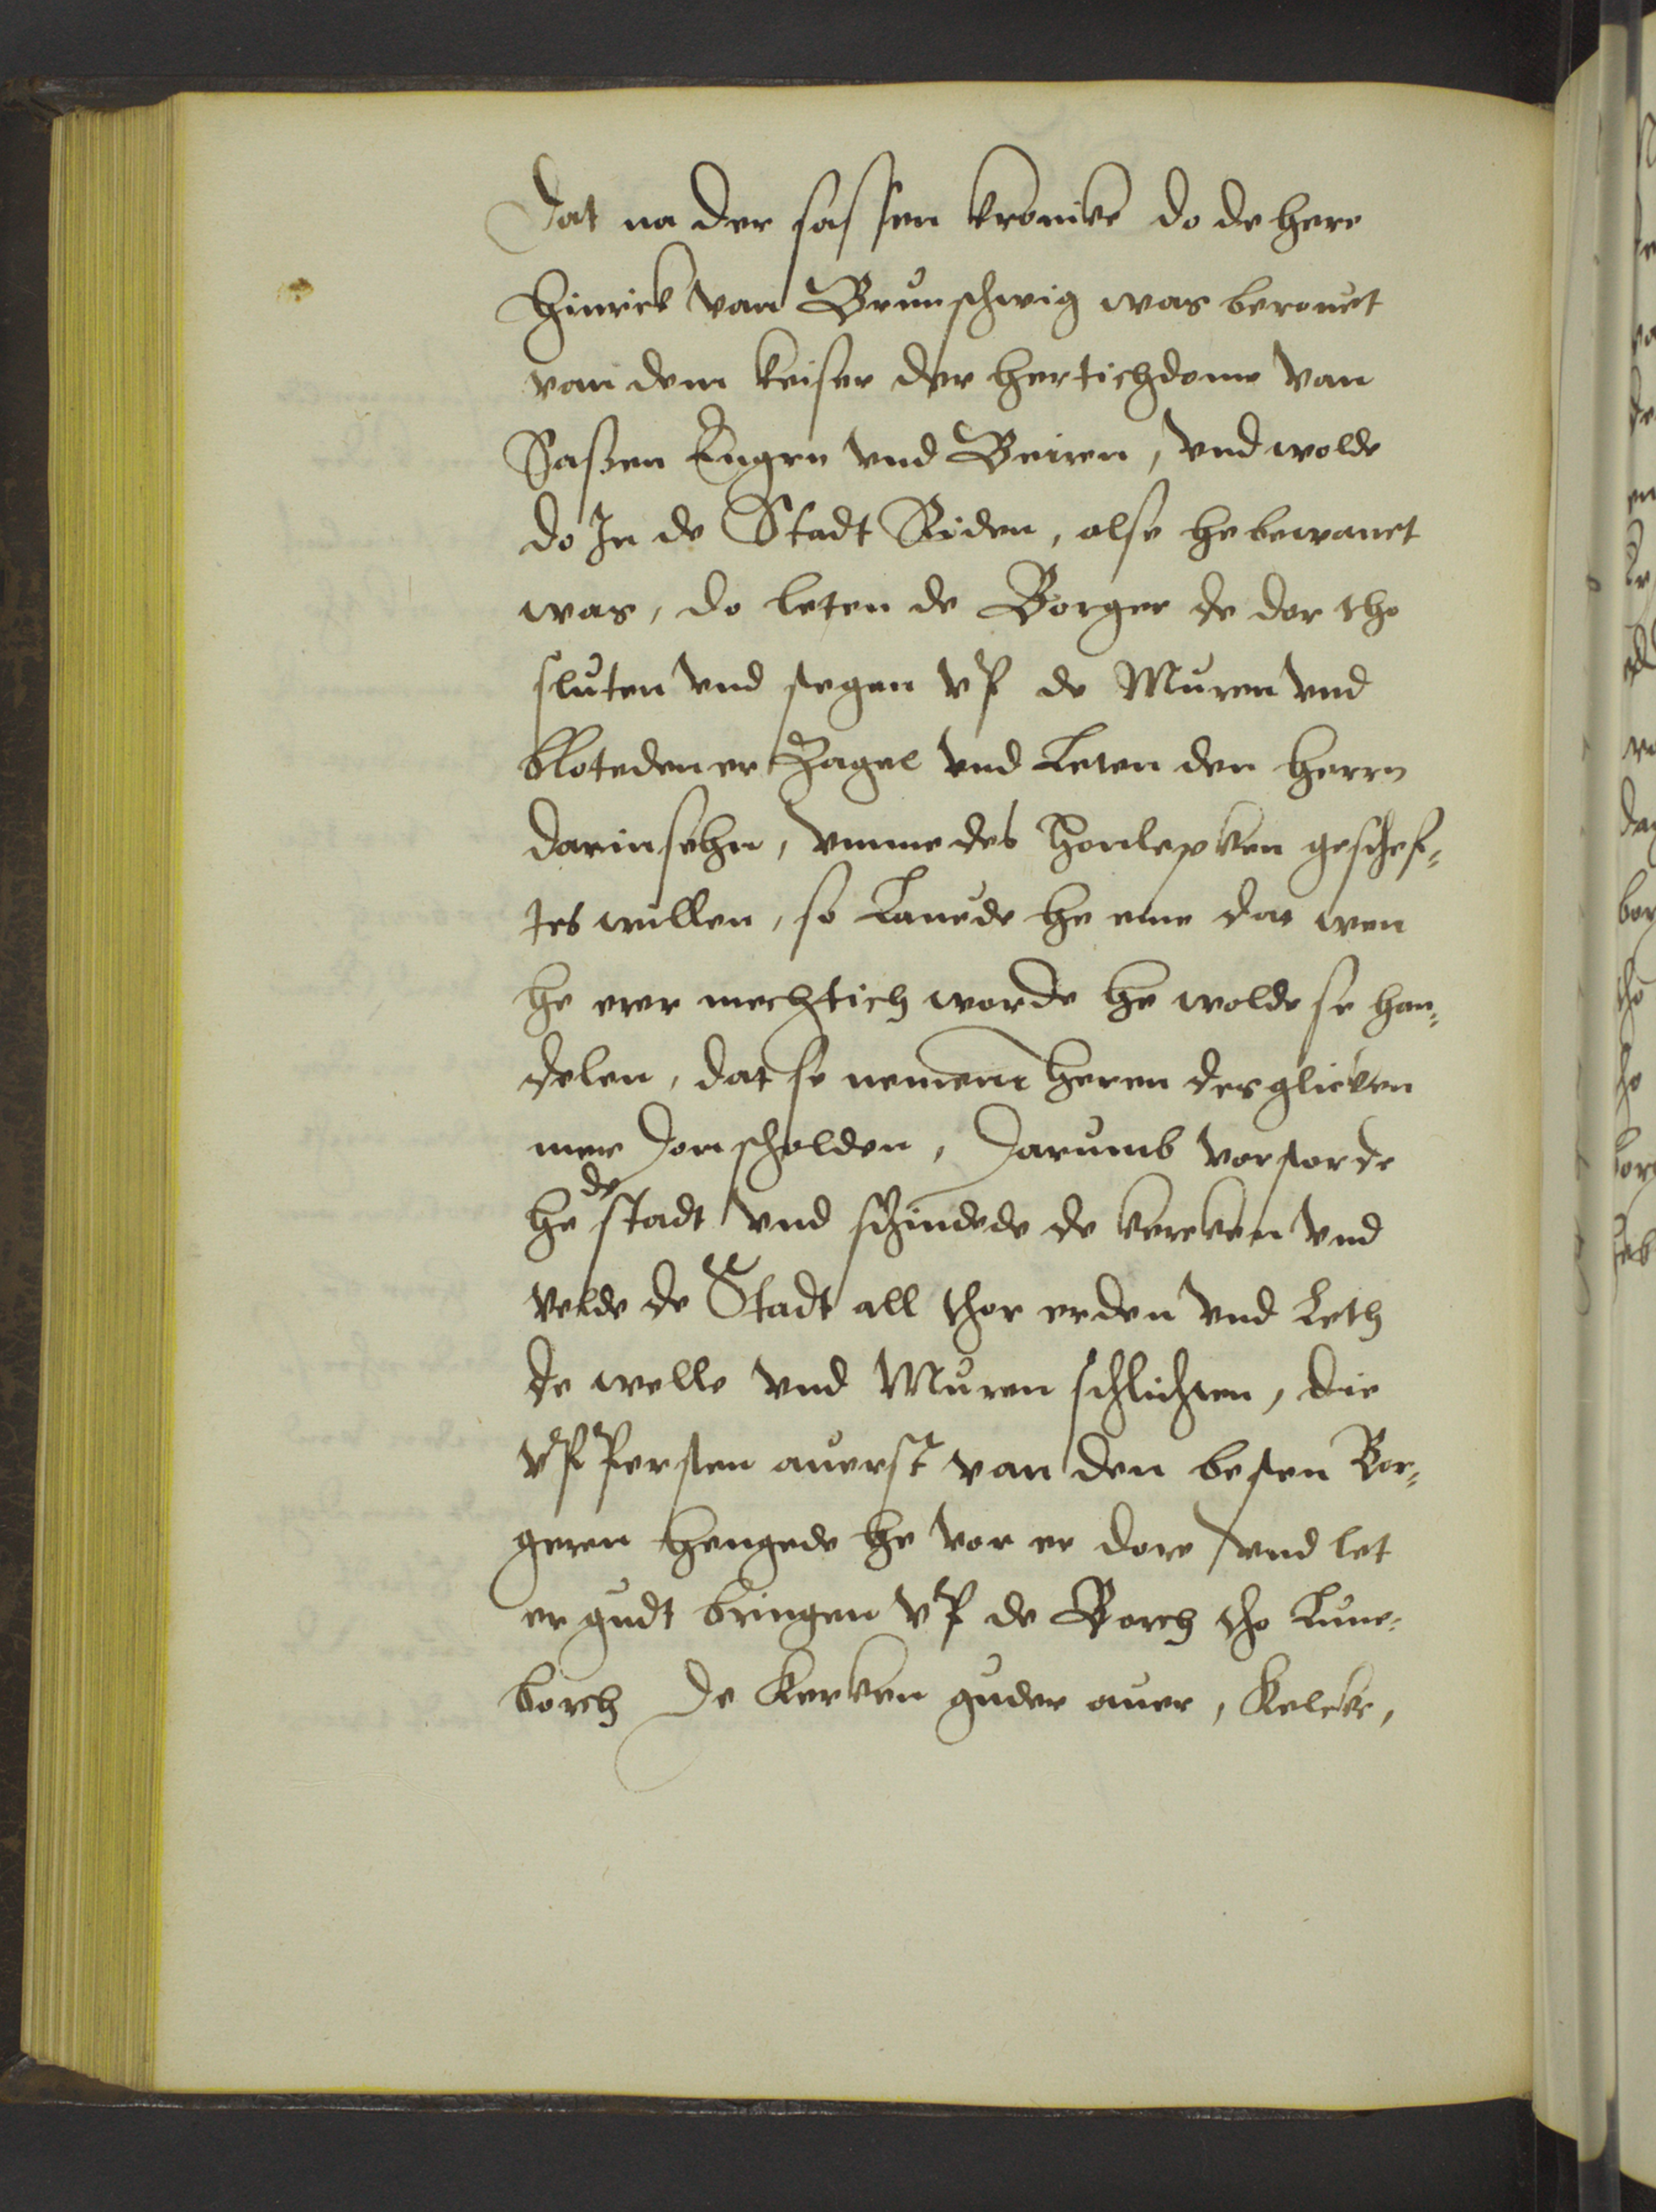 Dat na der sassen kronike do de here
Hinrick van Brunschwig was berouet
van dem keiser der hertichdome van
Saßen Engern vnd Beiren, vnd wolde
do In de Stadt Riden, alse he bewanet
was, do leten de Borger de dor tho
sluten vnd stegen vp de Muren vnd
bloteden er Zagel vnd Leten den herrn
darin sehn, vmme des honlepken geschef-
tes willen, so Lauede he eme dat wen
he erer mechtich worde he wolde se han-
delen, dat se nemene heren der gliken
mer don scholden, Darumb vorstorde
he de stadt vnd schindede de kercken vnd
velde de Stadt all thor erden vnd Leth
de welle vnd Muren schlichten, die
vppersten auerst van den besten Bor-
geren hengede he vor er dore vnd let
er gudt bringen vp de Borch tho Lune-
borch De Kerken guder auer, Kelcke,